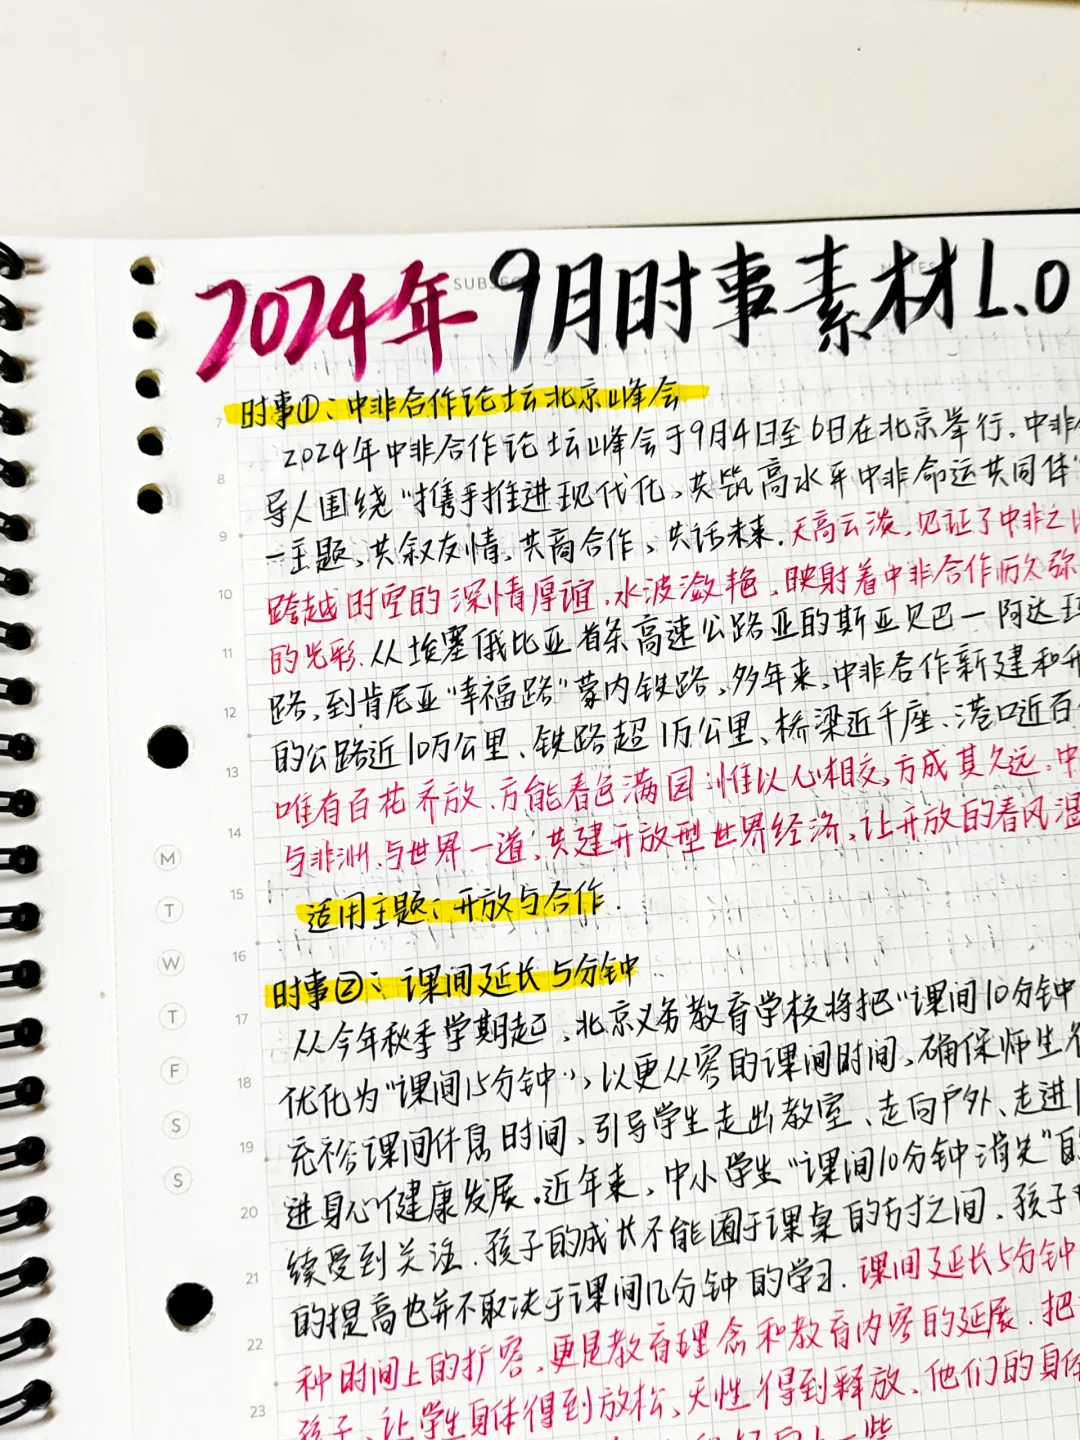 2024年 9月时事素材1.0
SUBJEC
时事①:中非合作论坛北京峰会
2024年中非合作论坛峰会于9月4日至6日在北京举行。中非
导人围绕“携手推进现代化,共筑高水平中非命运共同体”
一主题,共叙友情,共商合作、共话未来.天高云淡,见证了中非之
跨越时空的深情厚谊,水波潋艳,映射着中非合作历久弥
的光彩.从埃塞俄比亚首条高速公路亚的斯亚贝巴—阿达玛
路,到肯尼亚“幸福路”蒙内铁路,多年来,中非合作新建和升
的公路近10万公里、铁路超1万公里、桥梁近千座、港口近百
唯有百花齐放、方能春色满园,惟以心相交,方成其久远.中
与非洲、与世界一道,共建开放型世界经济,让开放的春风温
适用主题:开放与合作.
时事②:课间延长5分钟
从今年秋季学期起,北京义务教育学校将把“课间10分钟
优化为“课间15分钟”,以更从容的课间时间、确保师生
充裕课间休息时间、引导学生走出教室、走向户外、走进
进身心健康发展。近年来,中小学生“课间10分钟消失”的
续受到关注.孩子的成长不能囿于课桌的方寸之间、孩子
的提高也并不取决于课间几分钟的学习.课间延长5分钟
种时间上的扩容,更是教育理念和教育内容的延展.把
孩子、让学生身体得到放松、天性得到释放、他们的身体
7
8
9
10
11
12
13
14
15
16
17
18
19
20
21
22
23
M
T
W
T
F
S
S